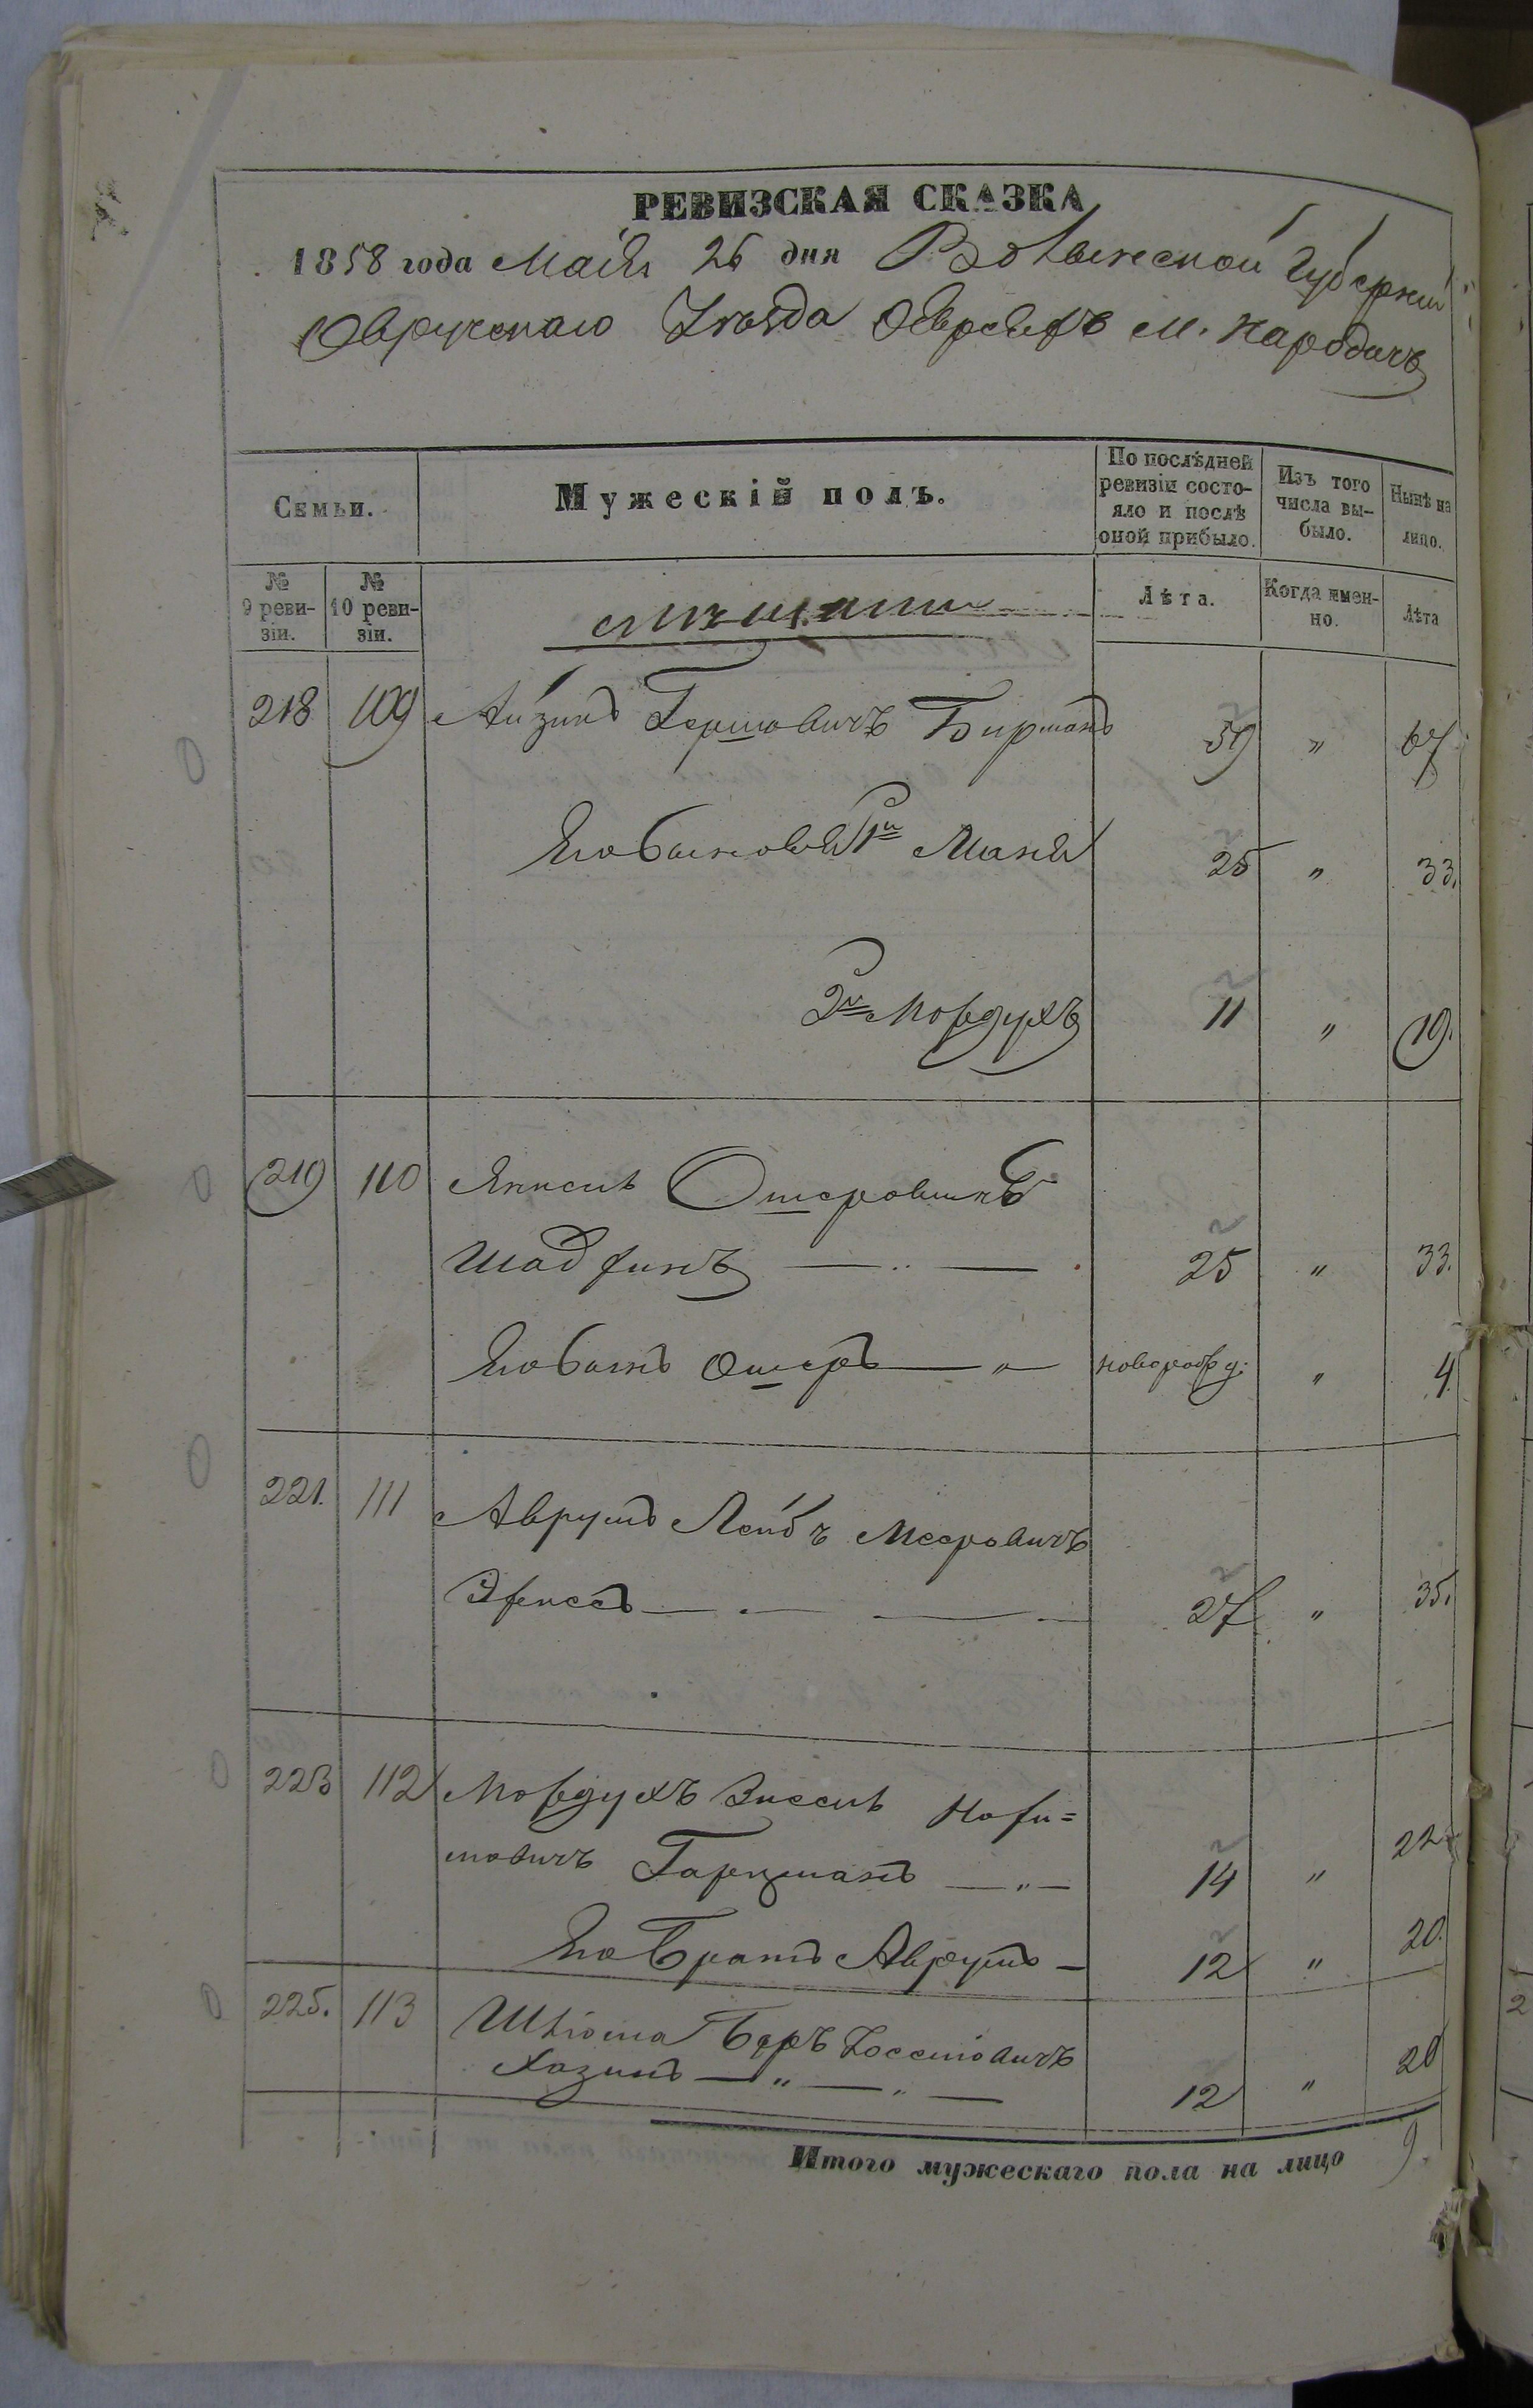 РЕВИЗСКАЯ СКАЗКА
1858 года Маія 26 дня Волынской Губерніи
Овручскаго Уѣзда Овреевъ М. Народичъ
Семьи.
Мужескій полъ.
По послѣдней ревизіи состо-
яло и послѣ
оной прибыло.
Изъ того
числа вы-
было.
Нынѣ на
лицо.
№
9 реви-
зіи.
№
10 реви-
зіи.
мѣщане
Лѣта.
Когда имен-
но.
Лѣта
218 109 Айзикъ Гершовичъ Бирманъ 59 " 67
Его сыновья 1й Маня 25 " 33.
2й Мордухъ 11 " 19.
219 110 Янкель Ошеровичъ
Шадринъ — " — 25 " 33.
Его сынъ Ошеръ — " — новорожд: " 4.
221. 111 Аврумъ Лейбъ Мееровичъ
27 " 35.
223 112 Мордухъ Зиссель Нохи=
мовичъ Гарцманъ — " — 14 " 22
Его братъ Аврумъ — 12 " 20.
225. 113 Шліома Беръ Іосселіовичъ
Хазинъ — " — " — 12 " 20
Итого мужескаго пола на лицо 9.